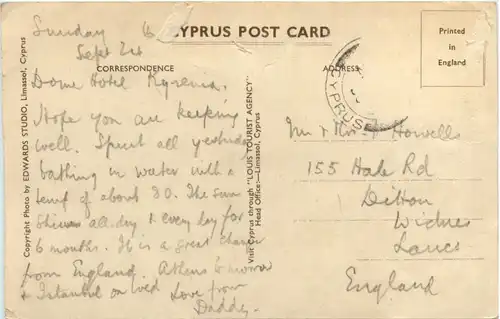 CYPRUS POST CARD
Printed
in
England
CORRESPONDENCE
ADDRESS
Copyright Photo by EDWARDS STUDIO, Limassol, Cyprus
Visit Cyprus through "LOUIS TOURIST AGENCY"
Head Office:—Limassol, Cyprus
CYPRUS
Sunday
Sept 2st
Dome Hotel Kyrenia.
Hope you are keeping
well. Spent all yesterday
bathing in water with a
temp of about 80. The sun
shines all day & every day for
6 months. It is a great change
from England. Athens tomorrow
& Istanbul on Wed Love from
Daddy.
Mr & Mrs Howells
155 Hale Rd
Ditton
Widnes
Lancs
England